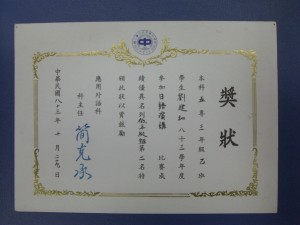 獎狀
本科五專三年級乙班
學生劉建和八十三學年度
參加日語廣播比賽成
績優異名列第二名特
頒此狀以資鼓勵
應用外語科
科主任
簡克承
中華民國八十三年十月二九日